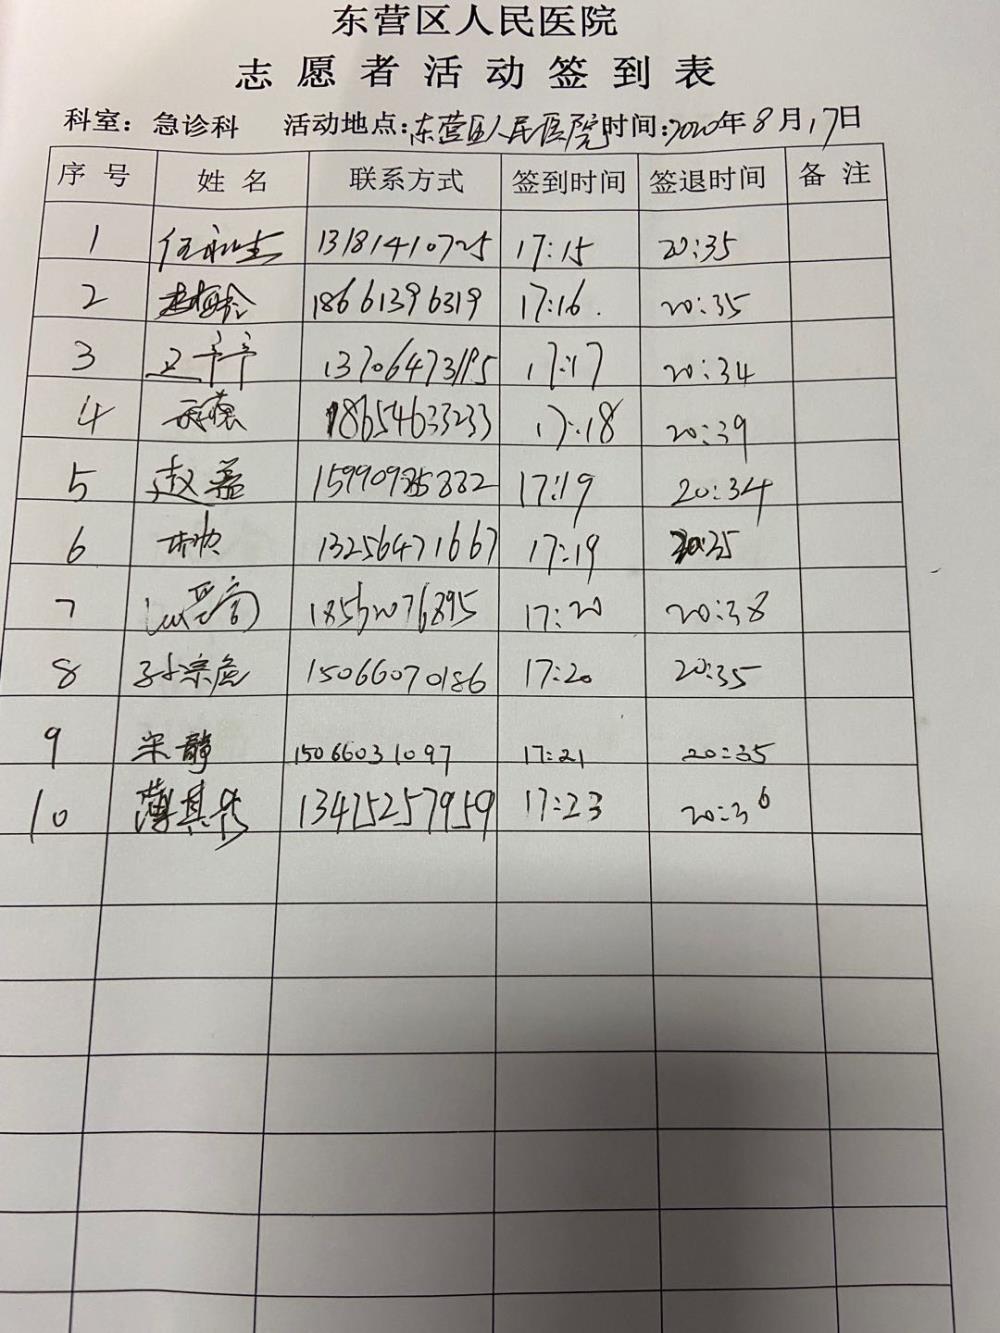 东营区人民医院
志愿者活动签到表
科室：急诊科 活动地点：东营区人民医院 时间：2020年8月17日
序号 姓名 联系方式 签到时间 签退时间 备注
1 任永杰 13181410725 17:15 20:35
2 18661396319 17:16. 20:35
3 13706473195 17:17 20:34
4 18654633233 17:18 20:39
5 赵盖 17:19 20:34
6 13256471667 17:19 20:35
7 18562076895 17:20 20:38
8 孙宗彪 15066070186 17:20 20:35
9 宋静 15066031097 17:21 20:35
10 薄其乐 13475257959 17:23 20:36